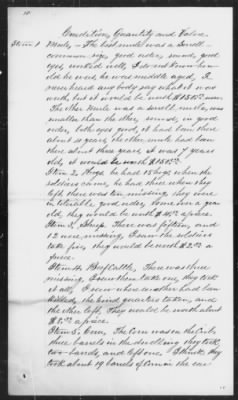 10.
Condition, Quantity and Value
Item 1. Mules, - The best mule was a small
common size, good order, sound, good
eyes, worked well, I do not know how
old he was, he was middle aged, I
never heard any body say what it was
worth, but it would be worth $150.00.
The other Mule was a small mule, was
smaller than the other, sound, in good
order, both eyes good, it had been there
about 10 years, the other mule had been
there about three years, it was 7 years
old, it would be worth $150.00
Item 2, Hogs he had 15 hogs when the
soldiers came, he had three when they
left, there was ten missing, they were
in tolerable good order, some over a year
old, they would be worth a piece.
Item 3, Sheep. There was fifteen, and
12 were missing, I saw the soldiers
take five, they would be worth $2.00 a
piece.
Item 4, Beef Cattle, There was three
missing, I saw them take one, they took
it all, I seen where another had been
killed, the hind quarters taken, and
the other left, They would be worth about
a piece.
Item 5, Corn, The Corn was in the Crib,
three barrels in the dwelling they took
two barrels, and left one I think they
took about 19 barrels of Corn in the ear